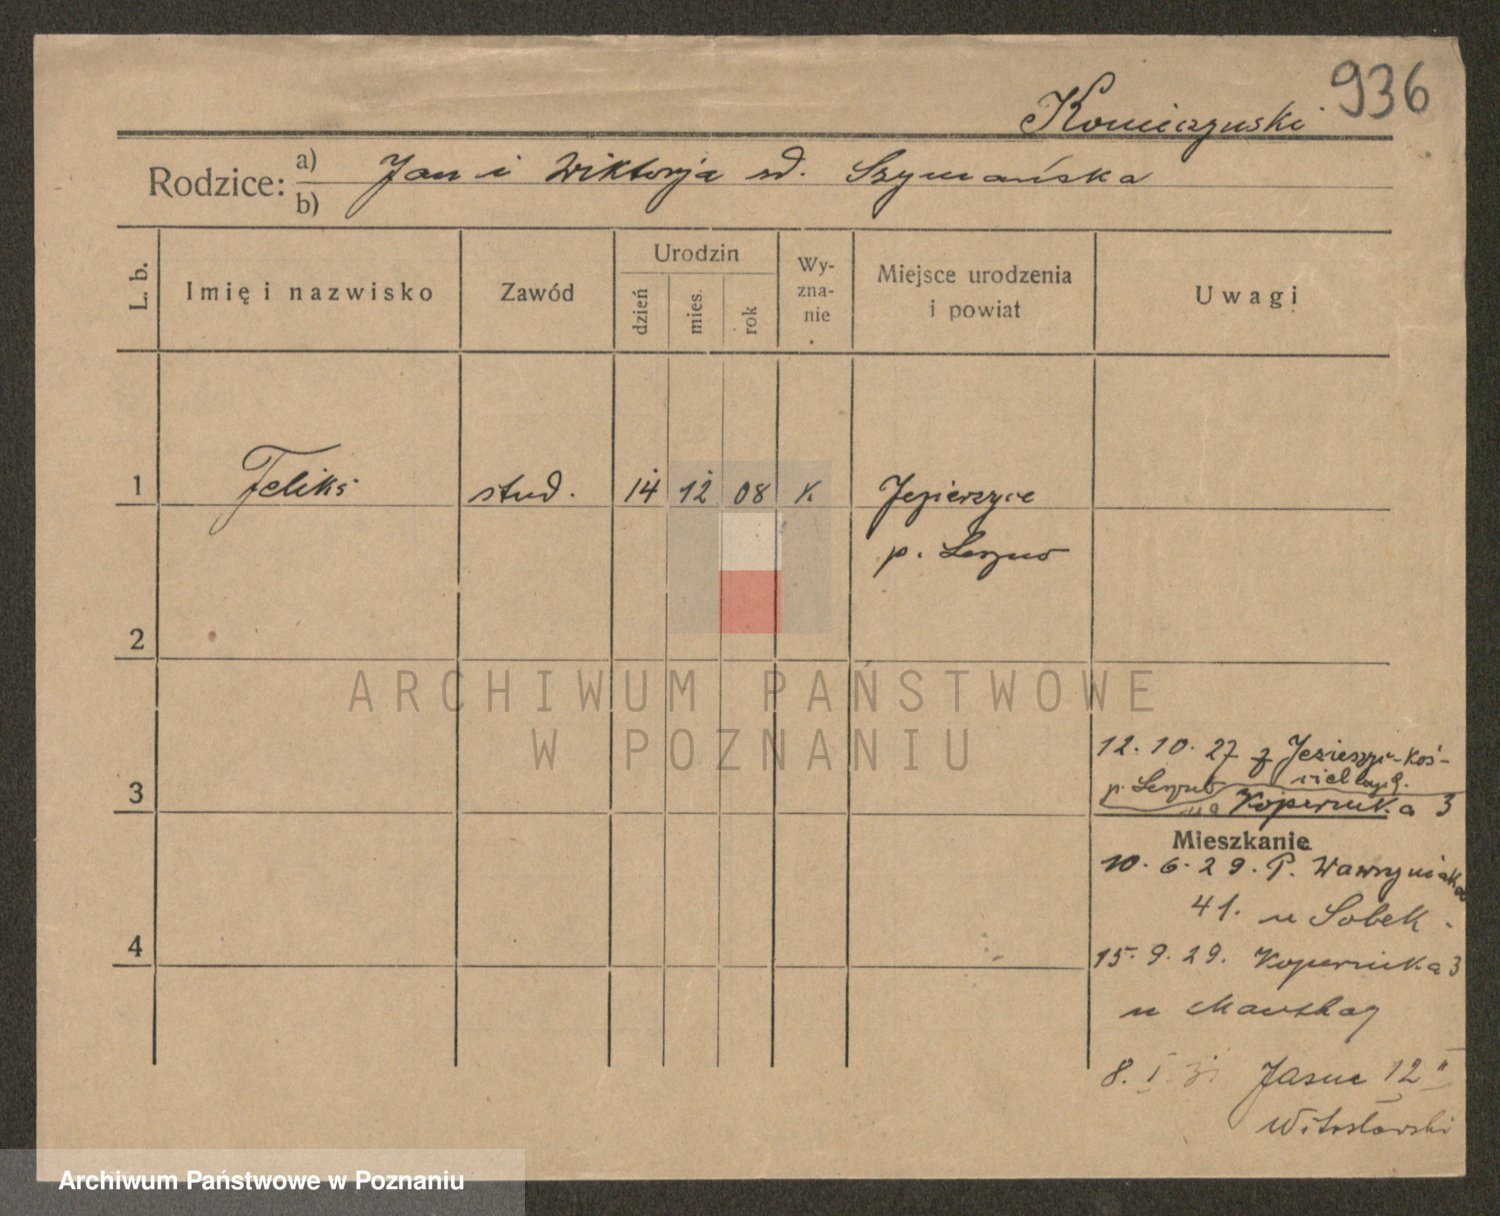 936
Konieczynski
Rodzice: a) Jan i Wiktorja rd. Szymańska
b)
L. b.
Imię i nazwisko
Zawód
Urodzin
dzień
mies.
rok
Wy-
zna-
nie
Miejsce urodzenia
i powiat
Uwagi
1 Feliks stud. 14 12 08 K. Jezierzyce
p. Leszno
2
3
4
ARCHIWUM PAŃSTWOWE
W POZNANIU
12. 10. 27 z Koś-
p. Leszno
na Kopernika 3
Mieszkanie
10. 6. 29. P. Wawrzyniaka
41. u Sobek.
15. 9. 29. Kopernika 3
u
8. I. 31 Jasna 12 II
Witosławski
Archiwum Państwowe w Poznaniu